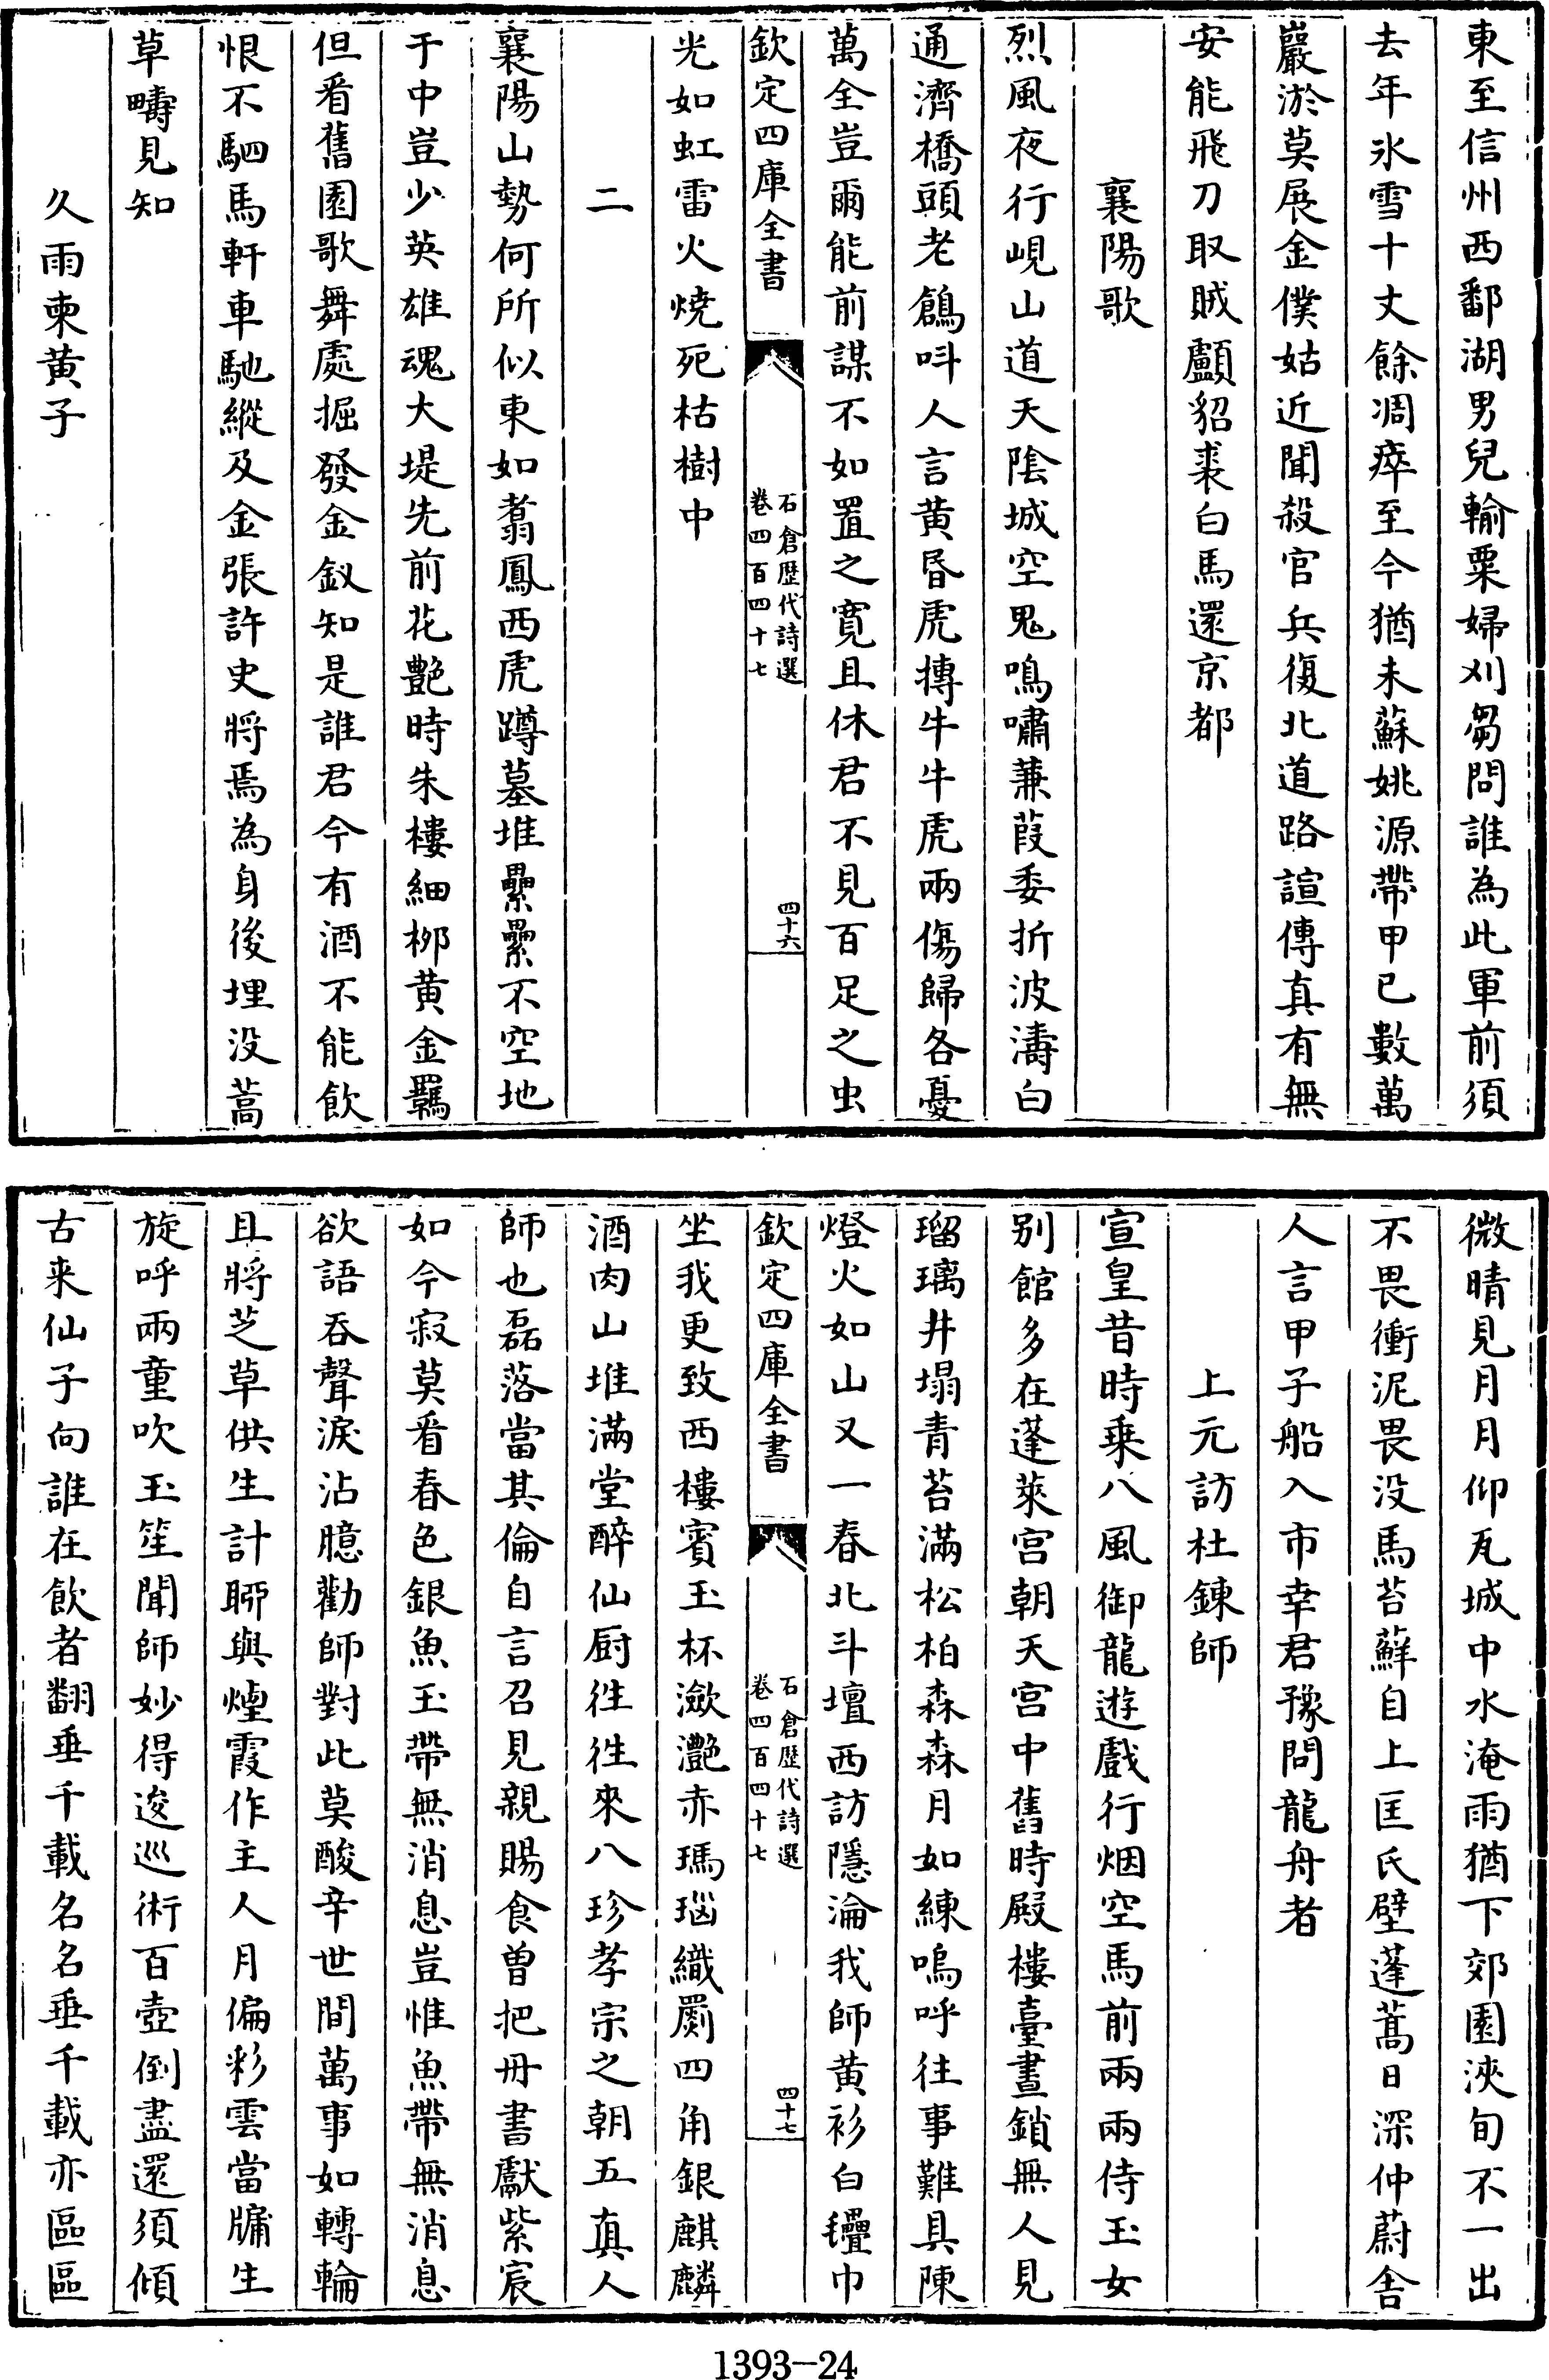 東至信州西鄱湖男兒輸粟婦刈芻問誰為此軍前須
去年氷雪十丈餘凋瘁至今猶未蘇姚源帶甲已數萬
巖淤莫展金僕姑近聞殺官兵復北道路諠傳真有無
安能飛刀取賊顱貂裘白馬還京都
襄陽歌
烈風夜行峴山道天陰城空鬼鳴嘯蒹葭委折波濤白
通濟橋頭老鶬呌人言黄昏虎搏牛牛虎兩傷歸各憂
萬全豈爾能前謀不如置之寛且休君不見百足之虫
欽定四庫全書
石倉歴代詩選
卷四百四十七
四十六
光如虹雷火燒死枯樹中
二
襄陽山勢何所似東如翥鳳西虎蹲墓堆纍纍不空地
于中豈少英雄魂大堤先前花艷時朱樓細栁黄金羈
但看舊園歌舞處掘發金釵知是誰君今有酒不能飲
恨不駟馬軒車馳縱及金張許史將焉為身後埋没蒿
草疇見知
久雨柬黄子
微晴見月月仰瓦城中水淹雨猶下郊園浹旬不一出
不畏衝泥畏没馬苔蘚自上匡氏壁蓬蒿日深仲蔚舍
人言甲子船入市幸君豫問龍舟者
上元訪杜鍊師
宣皇昔時乗八風御龍遊戲行烟空馬前兩兩侍玉女
别館多在蓬萊宫朝天宫中舊時殿樓臺晝鎖無人見
瑠璃井塌青苔滿松柏森森月如練嗚呼往事難具陳
燈火如山又一春北斗壇西訪隱淪我師黄衫白㲲巾
欽定四庫全書
石倉歴代詩選
卷四百四十七
四十七
坐我更致西樓賓玉杯瀲灧赤瑪瑙織罽四角銀麒麟
酒肉山堆滿堂醉仙厨徃徃來八珍孝宗之朝五真人
師也磊落當其倫自言召見親賜食曽把冊書獻紫宸
如今寂莫看春色銀魚玉帶無消息豈惟魚帶無消息
欲語吞聲淚沾臆勸師對此莫酸辛世間萬事如轉輪
且將芝草供生計聊與煙霞作主人月偏彩雲當牖生
旋呼兩童吹玉笙聞師妙得逡巡術百壺倒盡還須傾
古来仙子向誰在飲者翻垂千載名名垂千載亦區區
1393-24